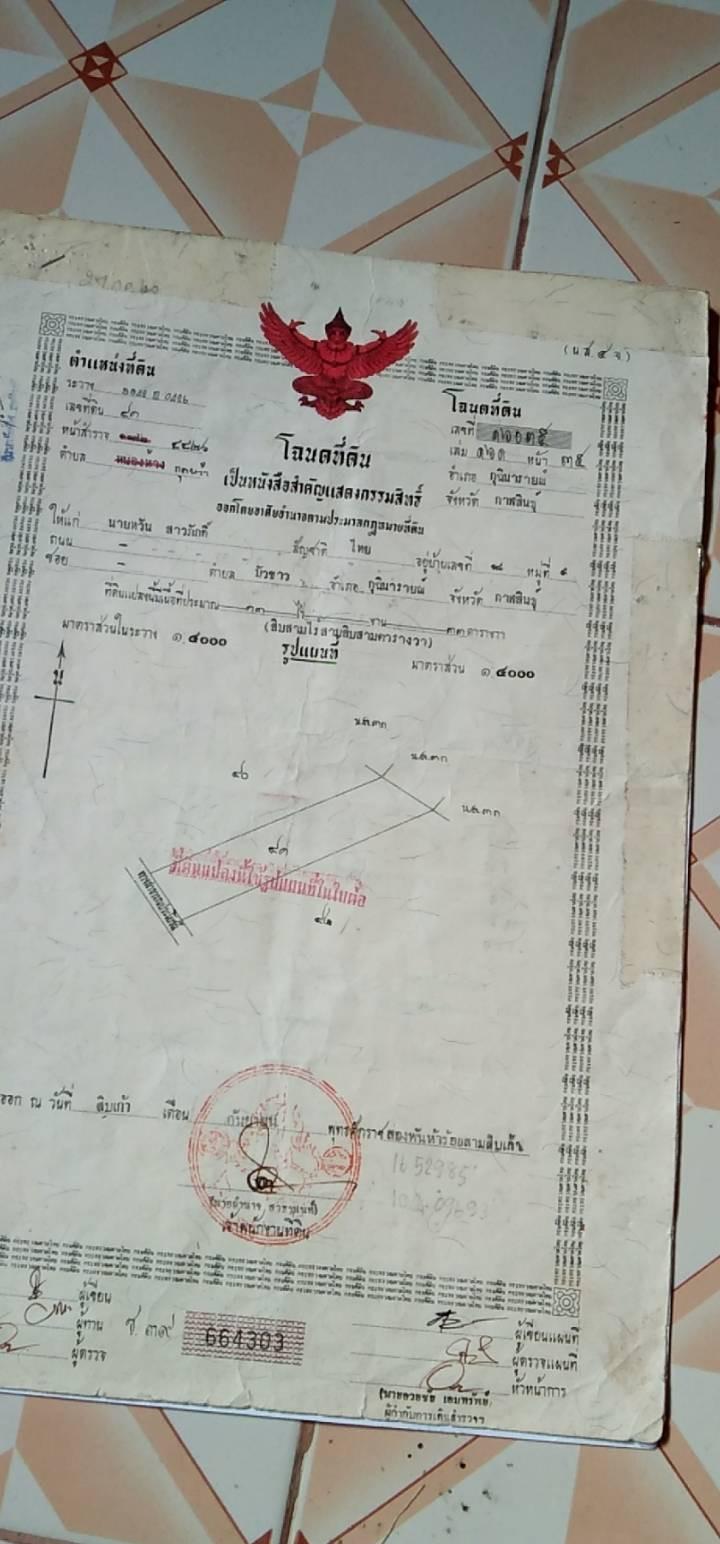 (น.ส.๔ จ)
ตำแหน่งที่ดิน
ระวาง
เลขที่ดิน ๔๓
หน้าสำรวจ ๔๔๒๖
ตำบล หนองห้าง กุดหว้า
โฉนดที่ดิน
เลขที่ ๑๖๐๓๕
เล่ม ๑๖๑ หน้า ๓๕
อำเภอ กุฉินารายณ์
จังหวัด กาฬสินธุ์
โฉนดที่ดิน
เป็นหนังสือสำคัญแสดงกรรมสิทธิ์
ออกโดยอาศัยอำนาจตามประมวลกฎหมายที่ดิน
ให้แก่ นายหวัน สาวภักดิ์ สัญชาติ ไทย อยู่บ้านเลขที่ หมู่ที่
ถนน – ซอย – ตำบล บัวขาว อำเภอ กุฉินารายณ์ จังหวัด กาฬสินธุ์
ที่ดินแปลงนี้มีเนื้อที่ประมาณ ๑๓ ไร่ งาน ๓๓ ตารางวา
(สิบสามไร่สามสิบสามตารางวา)
มาตราส่วนในระวาง ๑:๔๐๐๐ รูปแผนที่ มาตราส่วน ๑:๔๐๐๐
น
น.ส.๓ก
น.ส.๓ก
น.ส.๓ก
๔๓
ที่ดินแปลงนี้ใช้รูปแผนที่ในใบต่อ
ออก ณ วันที่ สิบเก้า เดือน กันยายน พุทธศักราช สองพันห้าร้อยสามสิบเก้า
เจ้าพนักงานที่ดิน
ผู้เขียน
ผู้ทาน
ผู้ตรวจ
664303
ผู้เขียนแผนที่
ผู้ตรวจแผนที่
หัวหน้าการ
ผู้กำกับการเดินสำรวจฯ